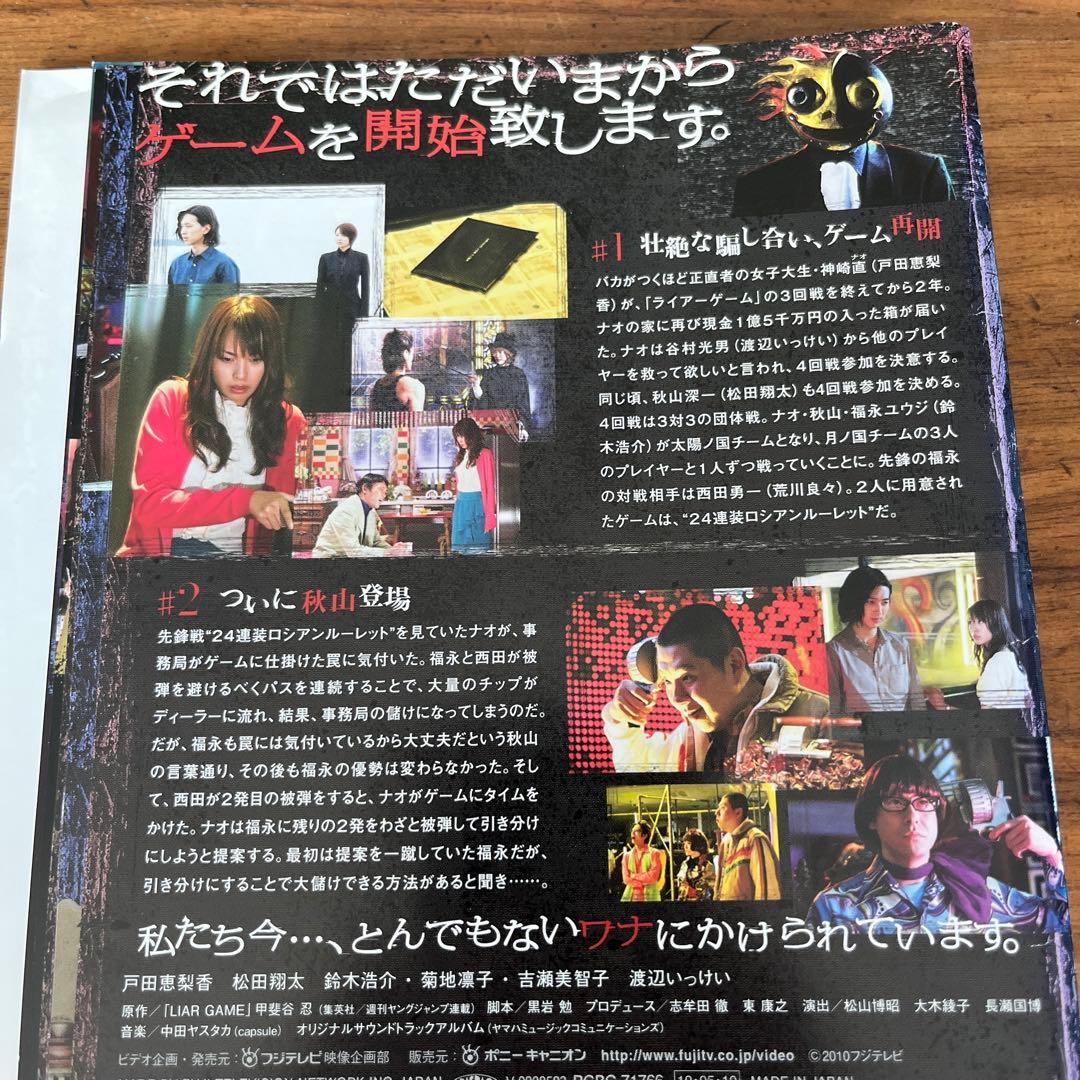 それではただいまから
ゲームを開始致します。
#1 壮絶な騙し合い、ゲーム再開
バカがつくほど正直者の女子大生・神崎直(戸田恵梨
ナオ
香)が、「ライアーゲーム」の3回戦を終えてから2年。
ナオの家に再び現金1億5千万円の入った箱が届い
た。ナオは谷村光男(渡辺いっけい)から他のプレイ
ヤーを救って欲しいと言われ、4回戦参加を決意する。
同じ頃、秋山深一(松田翔太)も4回戦参加を決める。
4回戦は3対3の団体戦。ナオ・秋山・福永ユウジ(鈴
木浩介)が太陽ノ国チームとなり、月ノ国チームの3人
のプレイヤーと1人ずつ戦っていくことに。先鋒の福永
の対戦相手は西田勇一(荒川良々)。2人に用意され
たゲームは、“24連装ロシアンルーレット”だ。
#2 ついに秋山登場
先鋒戦“24連装ロシアンルーレット”を見ていたナオが、事
務局がゲームに仕掛けた罠に気付いた。福永と西田が被
弾を避けるべくパスを連続することで、大量のチップが
ディーラーに流れ、結果、事務局の儲けになってしまうのだ。
だが、福永も罠には気付いているから大丈夫だという秋山
の言葉通り、その後も福永の優勢は変わらなかった。そし
て、西田が2発目の被弾をすると、ナオがゲームにタイムを
かけた。ナオは福永に残りの2発をわざと被弾して引き分け
にしようと提案する。最初は提案を一蹴していた福永だが、
引き分けにすることで大儲けできる方法があると聞き……。
私たち今…、とんでもないワナにかけられています。
戸田恵梨香 松田翔太 鈴木浩介・菊地凛子・吉瀬美智子 渡辺いっけい
原作/「LIAR GAME」甲斐谷 忍(集英社/週刊ヤングジャンプ連載) 脚本/黒岩 勉 プロデュース/志牟田 徹 東 康之 演出/松山博昭 大木綾子 長瀬国博
音楽/中田ヤスタカ(capsule) オリジナルサウンドトラックアルバム(ヤマハミュージックコミュニケーションズ)
ビデオ企画・発売元: フジテレビ映像企画部 販売元: ポニーキャニオン http://www.fujitv.co.jp/video ©2010フジテレビ
MADE IN JAPAN